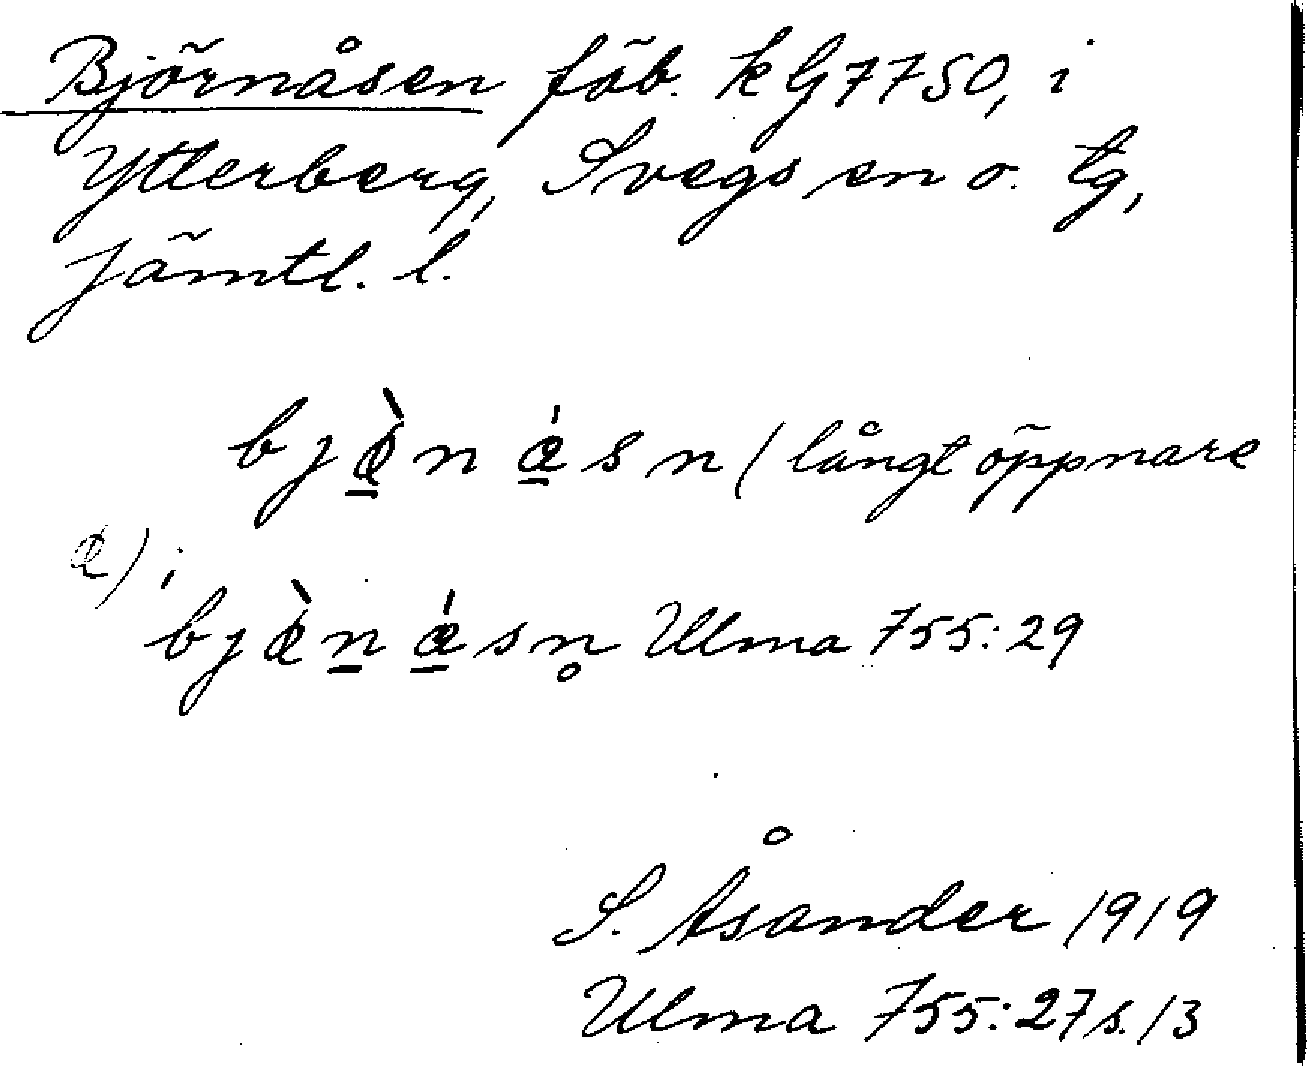 Björnåsen fäb. kG7750, i
Ytterberg, Svegs sn o. tg,
Jämtl. l.
bjæ̀n ǽsn (långt öppnare
æ) ;
bjæ̀n ǽsn̥ Ulma 755:29
S. Åsander 1919
Ulma 755:27 s. 13